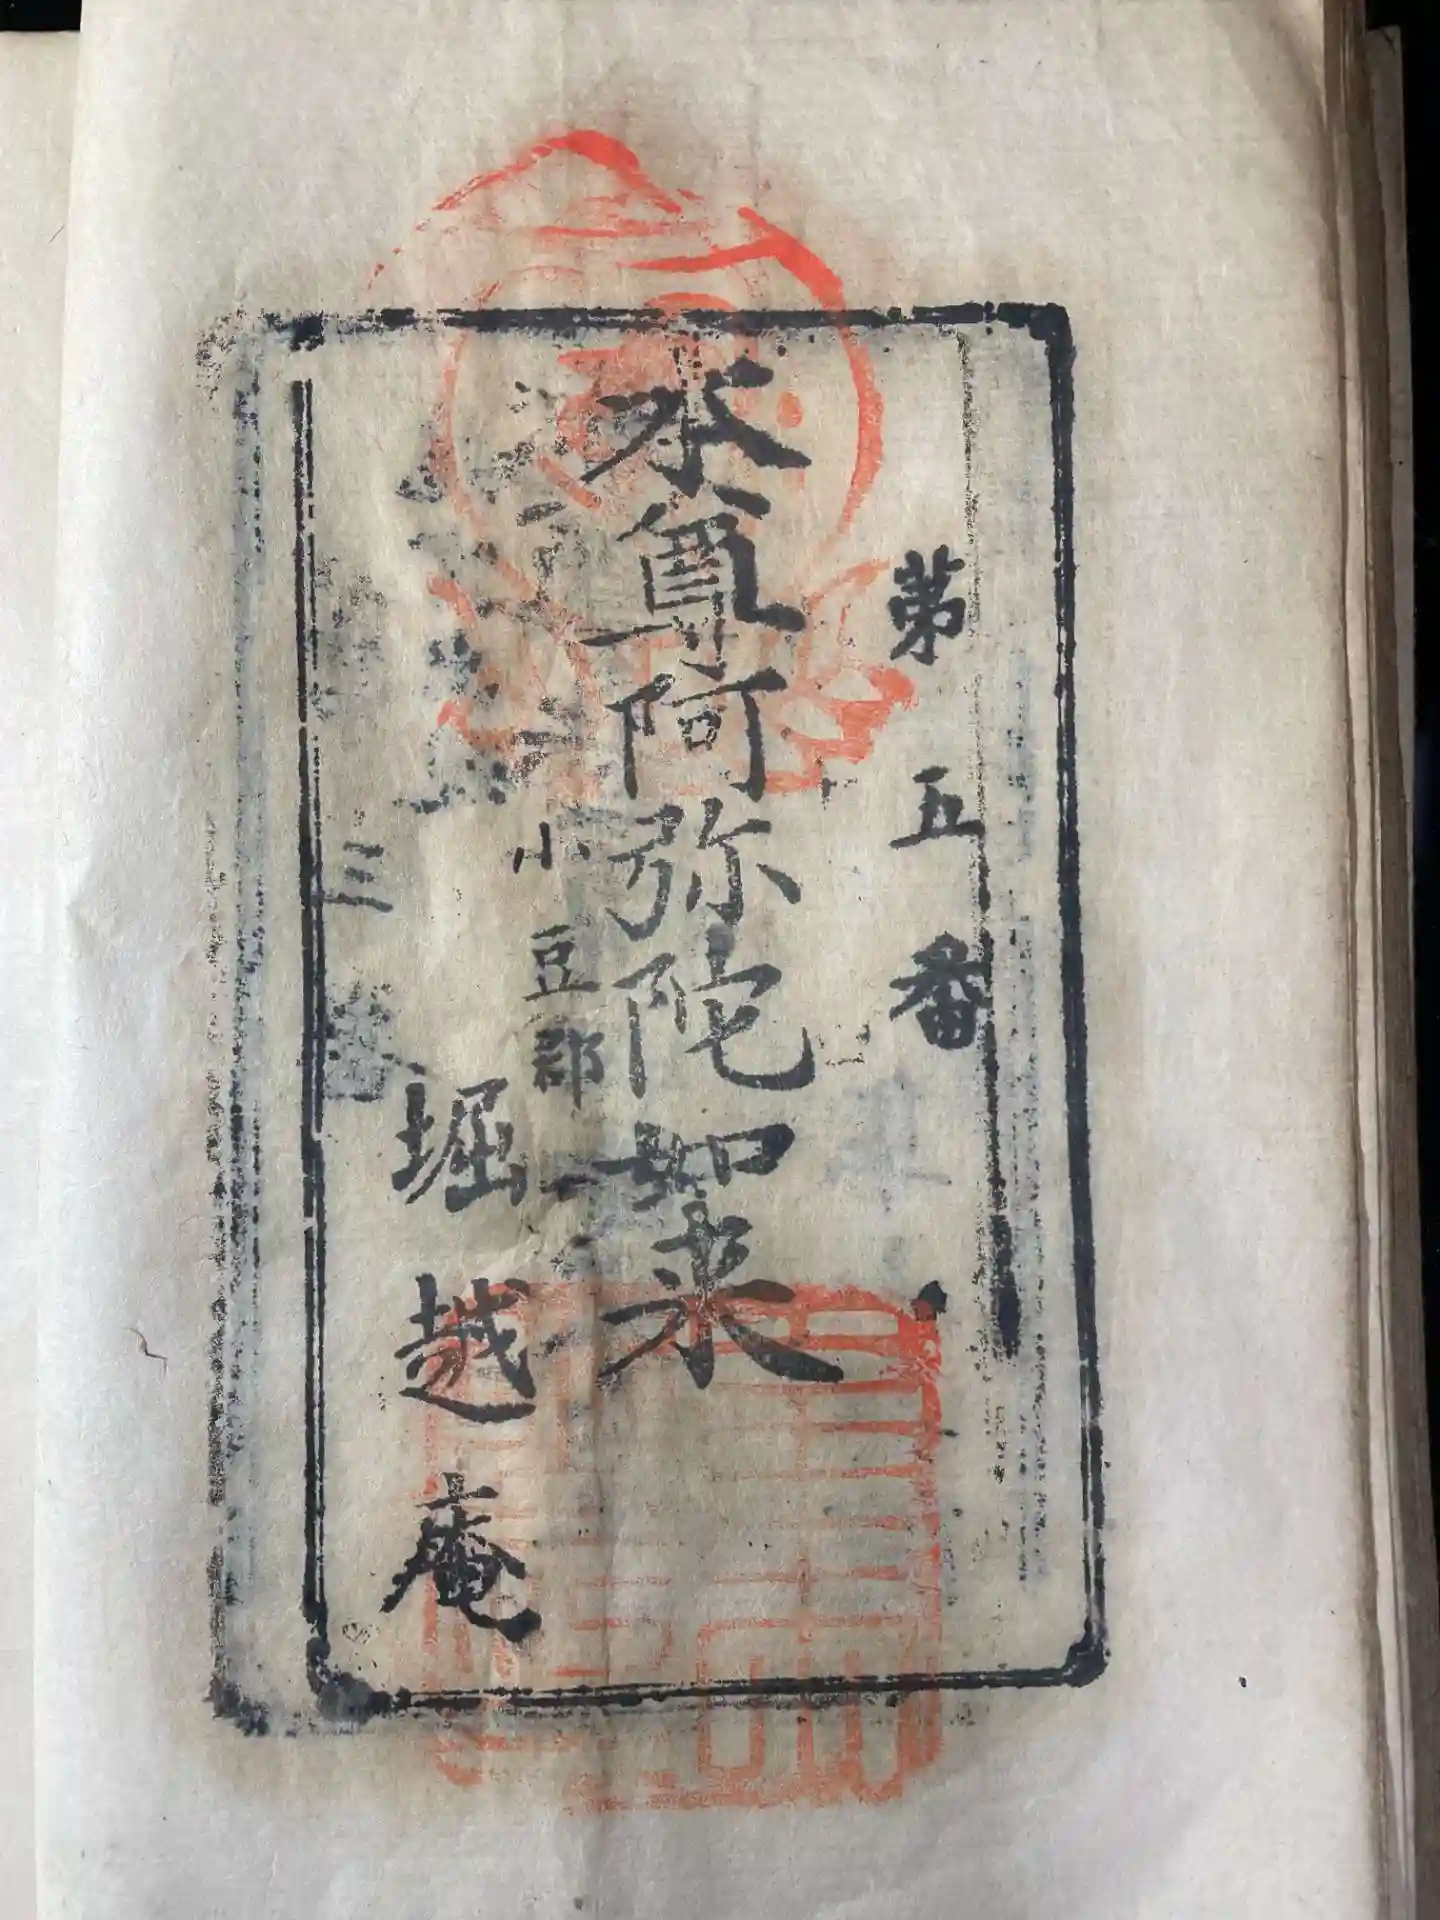 第五番
本尊阿弥陀如来
小豆郡
堀越庵